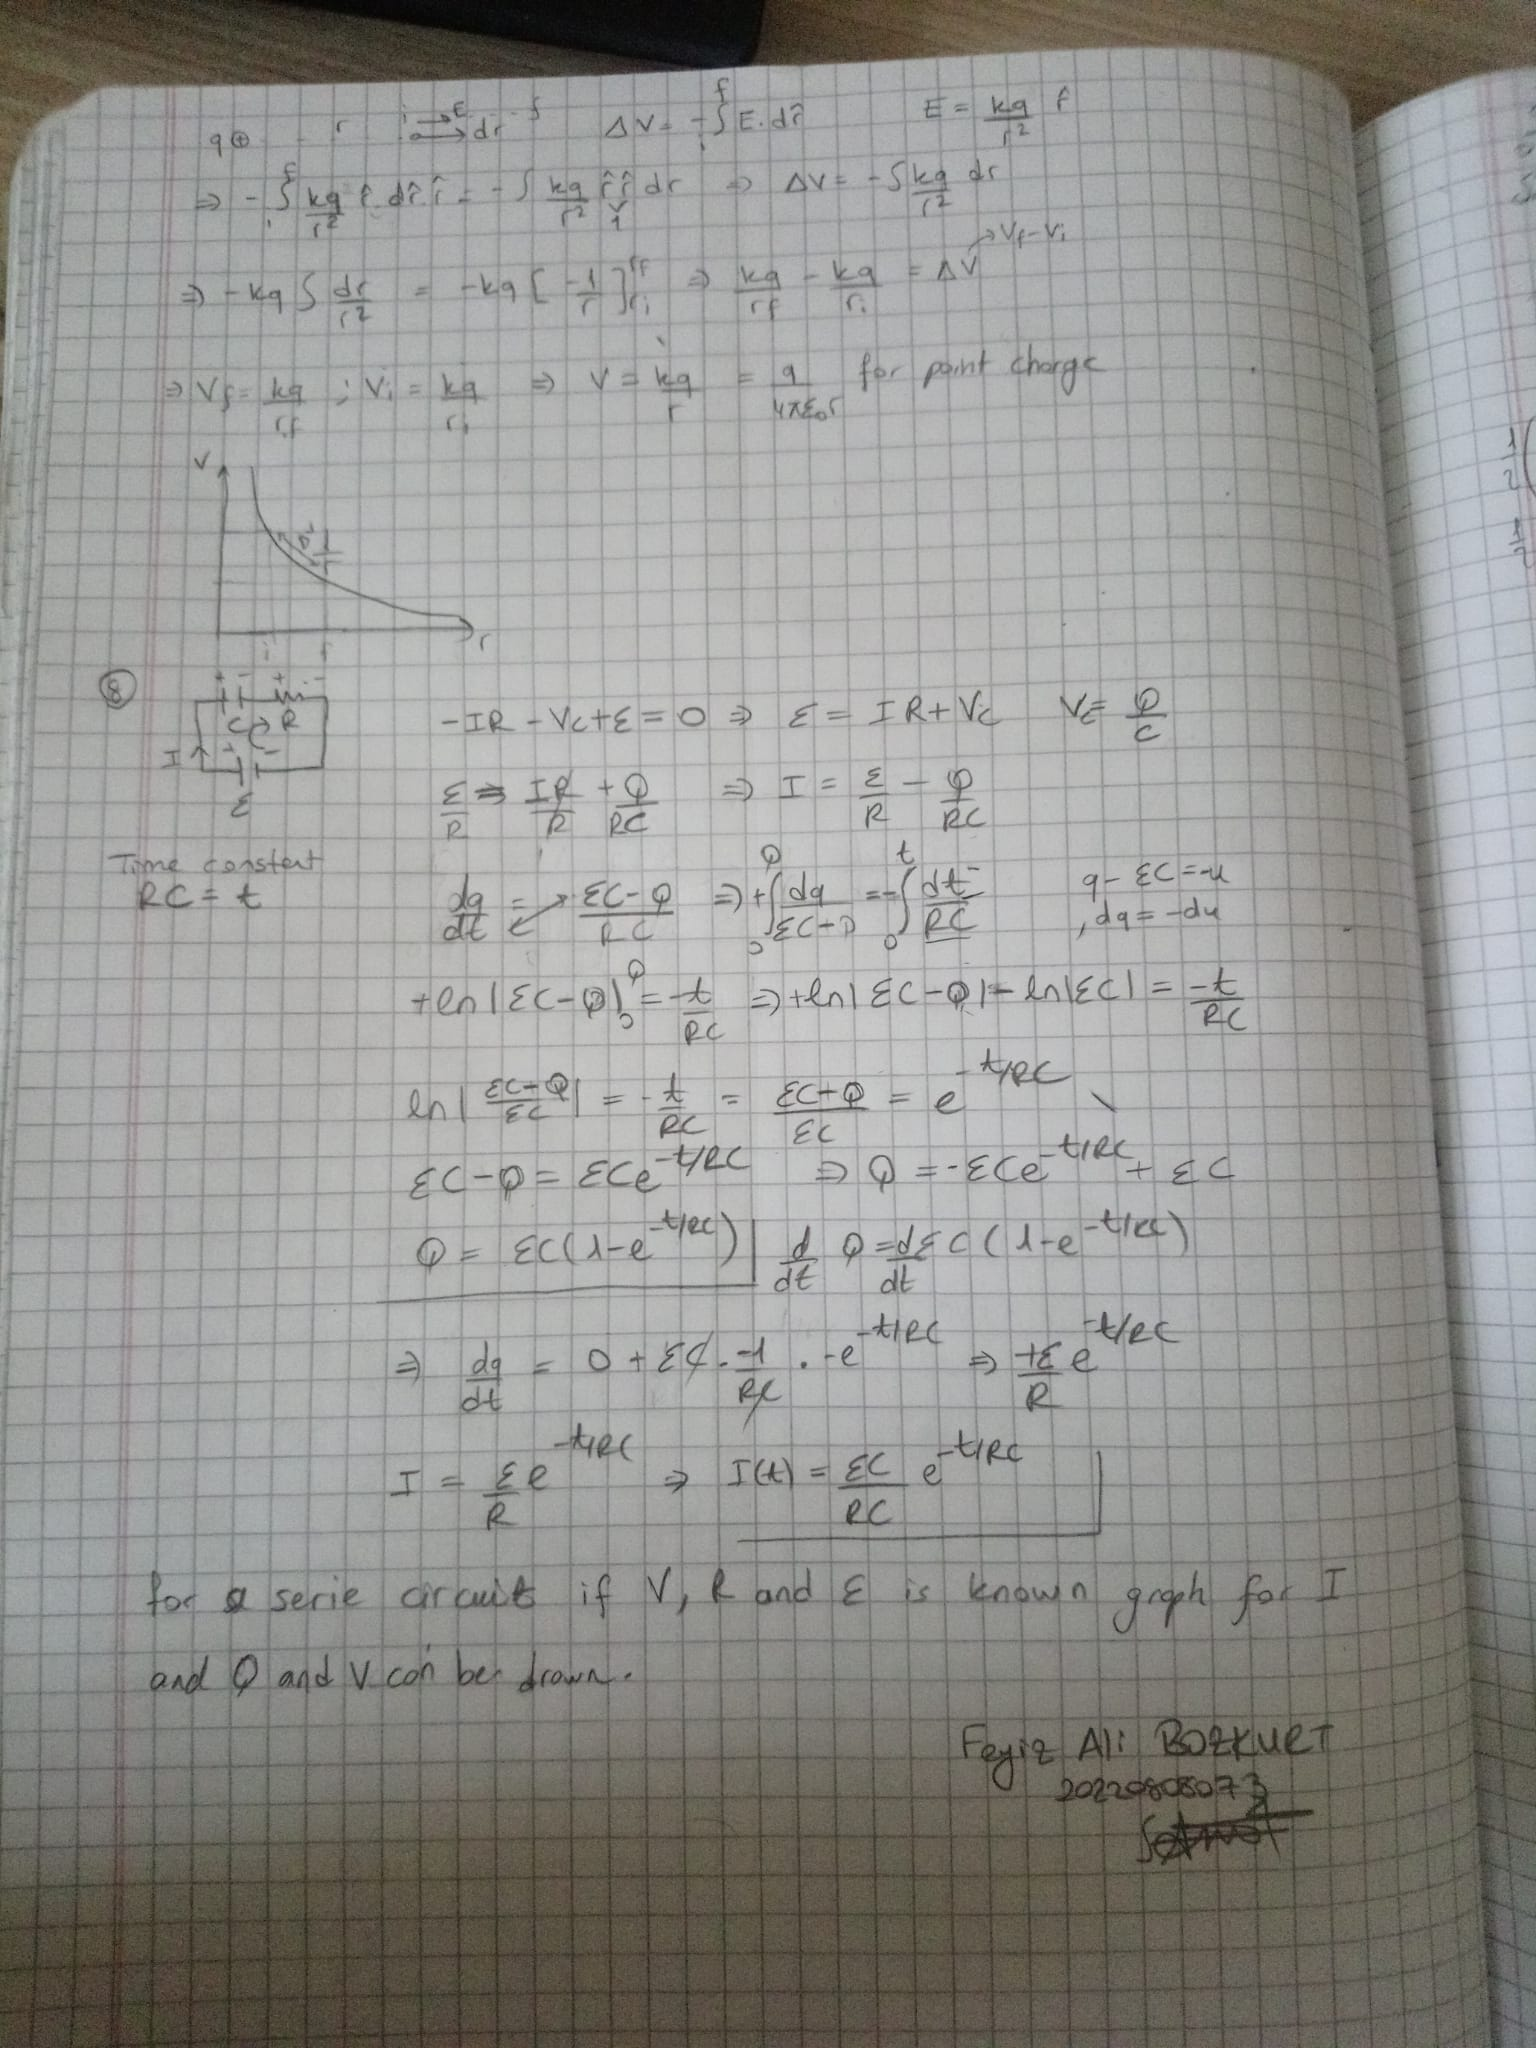 q⊕ r i → E → dr f ΔV = -∫ᵢᶠ E.dr̂ E = kq/r² r̂
⇒ -∫ᵢᶠ kq/r² r̂ . dr̂ r̂ = -∫ kq/r² r̂ r̂ dr ⇒ ΔV = -∫ kq/r² dr
1
⇒ -kq ∫ dr/r² = -kq [-1/r] rf ri ⇒ kq/rf - kq/ri = ΔV → Vf-Vi
⇒ Vf = kq/rf ; Vi = kq/ri ⇒ V = kq/r = q/4πε₀r for point charge
V
r
i f
8
+ - + -
C R
I + -
ε
-IR - Vc + ε = 0 ⇒ ε = IR + Vc Vc = Q/C
ε/R = IR/R + Q/RC ⇒ I = ε/R - Q/RC
Time constant
RC = t
dq/dt = εC-Q/RC ⇒ +∫₀^Q dq/εC-Q = -∫₀^t dt/RC q - εC = -u
, dq = -du
+ln|εC-Q|₀^Q = -t/RC ⇒ +ln|εC-Q| - ln|εC| = -t/RC
ln|εC-Q/εC| = -t/RC = εC-Q/εC = e^-t/RC
εC-Q = εCe^-t/RC ⇒ Q = -εCe^-t/RC + εC
Q = εC(1-e^-t/RC) d/dt Q = d/dt εC(1-e^-t/RC)
⇒ dq/dt = 0 + εC . -1/RC . -e^-t/RC ⇒ +ε/R e^-t/RC
I = ε/R e^-t/RC ⇒ I(t) = εC/RC e^-t/RC
for a serie circuit if V, R and ε is known graph for I
and Q and V can be drawn.
Feyiz Ali BOZKURT
20220808073